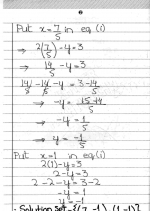 Put x = 7/5 in eq (i)
⇒ 2(7/5) - y = 3
⇒ 14/5 - y = 3
14/5 - 14/5 - y = 3 - 14/5
⇒ -y = 15-14/5
⇒ -y = 1/5
⇒ y = -1/5
Put x = 1 in eq (i)
2(1) - y = 3
2 - y = 3
2 - 2 - y = 3 - 2
-y = 1
y = -1
Solution Set = {(7, -1), (1, -1)}